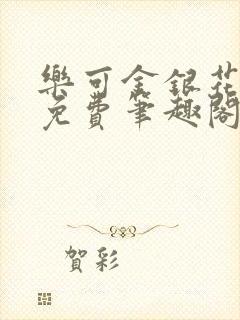 樂可金銀花
免費筆趣閣
賀彩